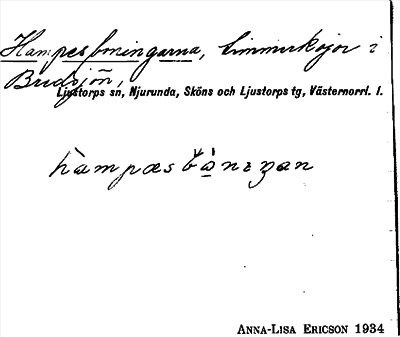 Hampesboningarna, timmerkojor i
Bredsjön,
Ljustorps sn, Njurunda, Sköns och Ljustorps tg, Västernorrl. l.
ANNA-LISA ERICSON 1934